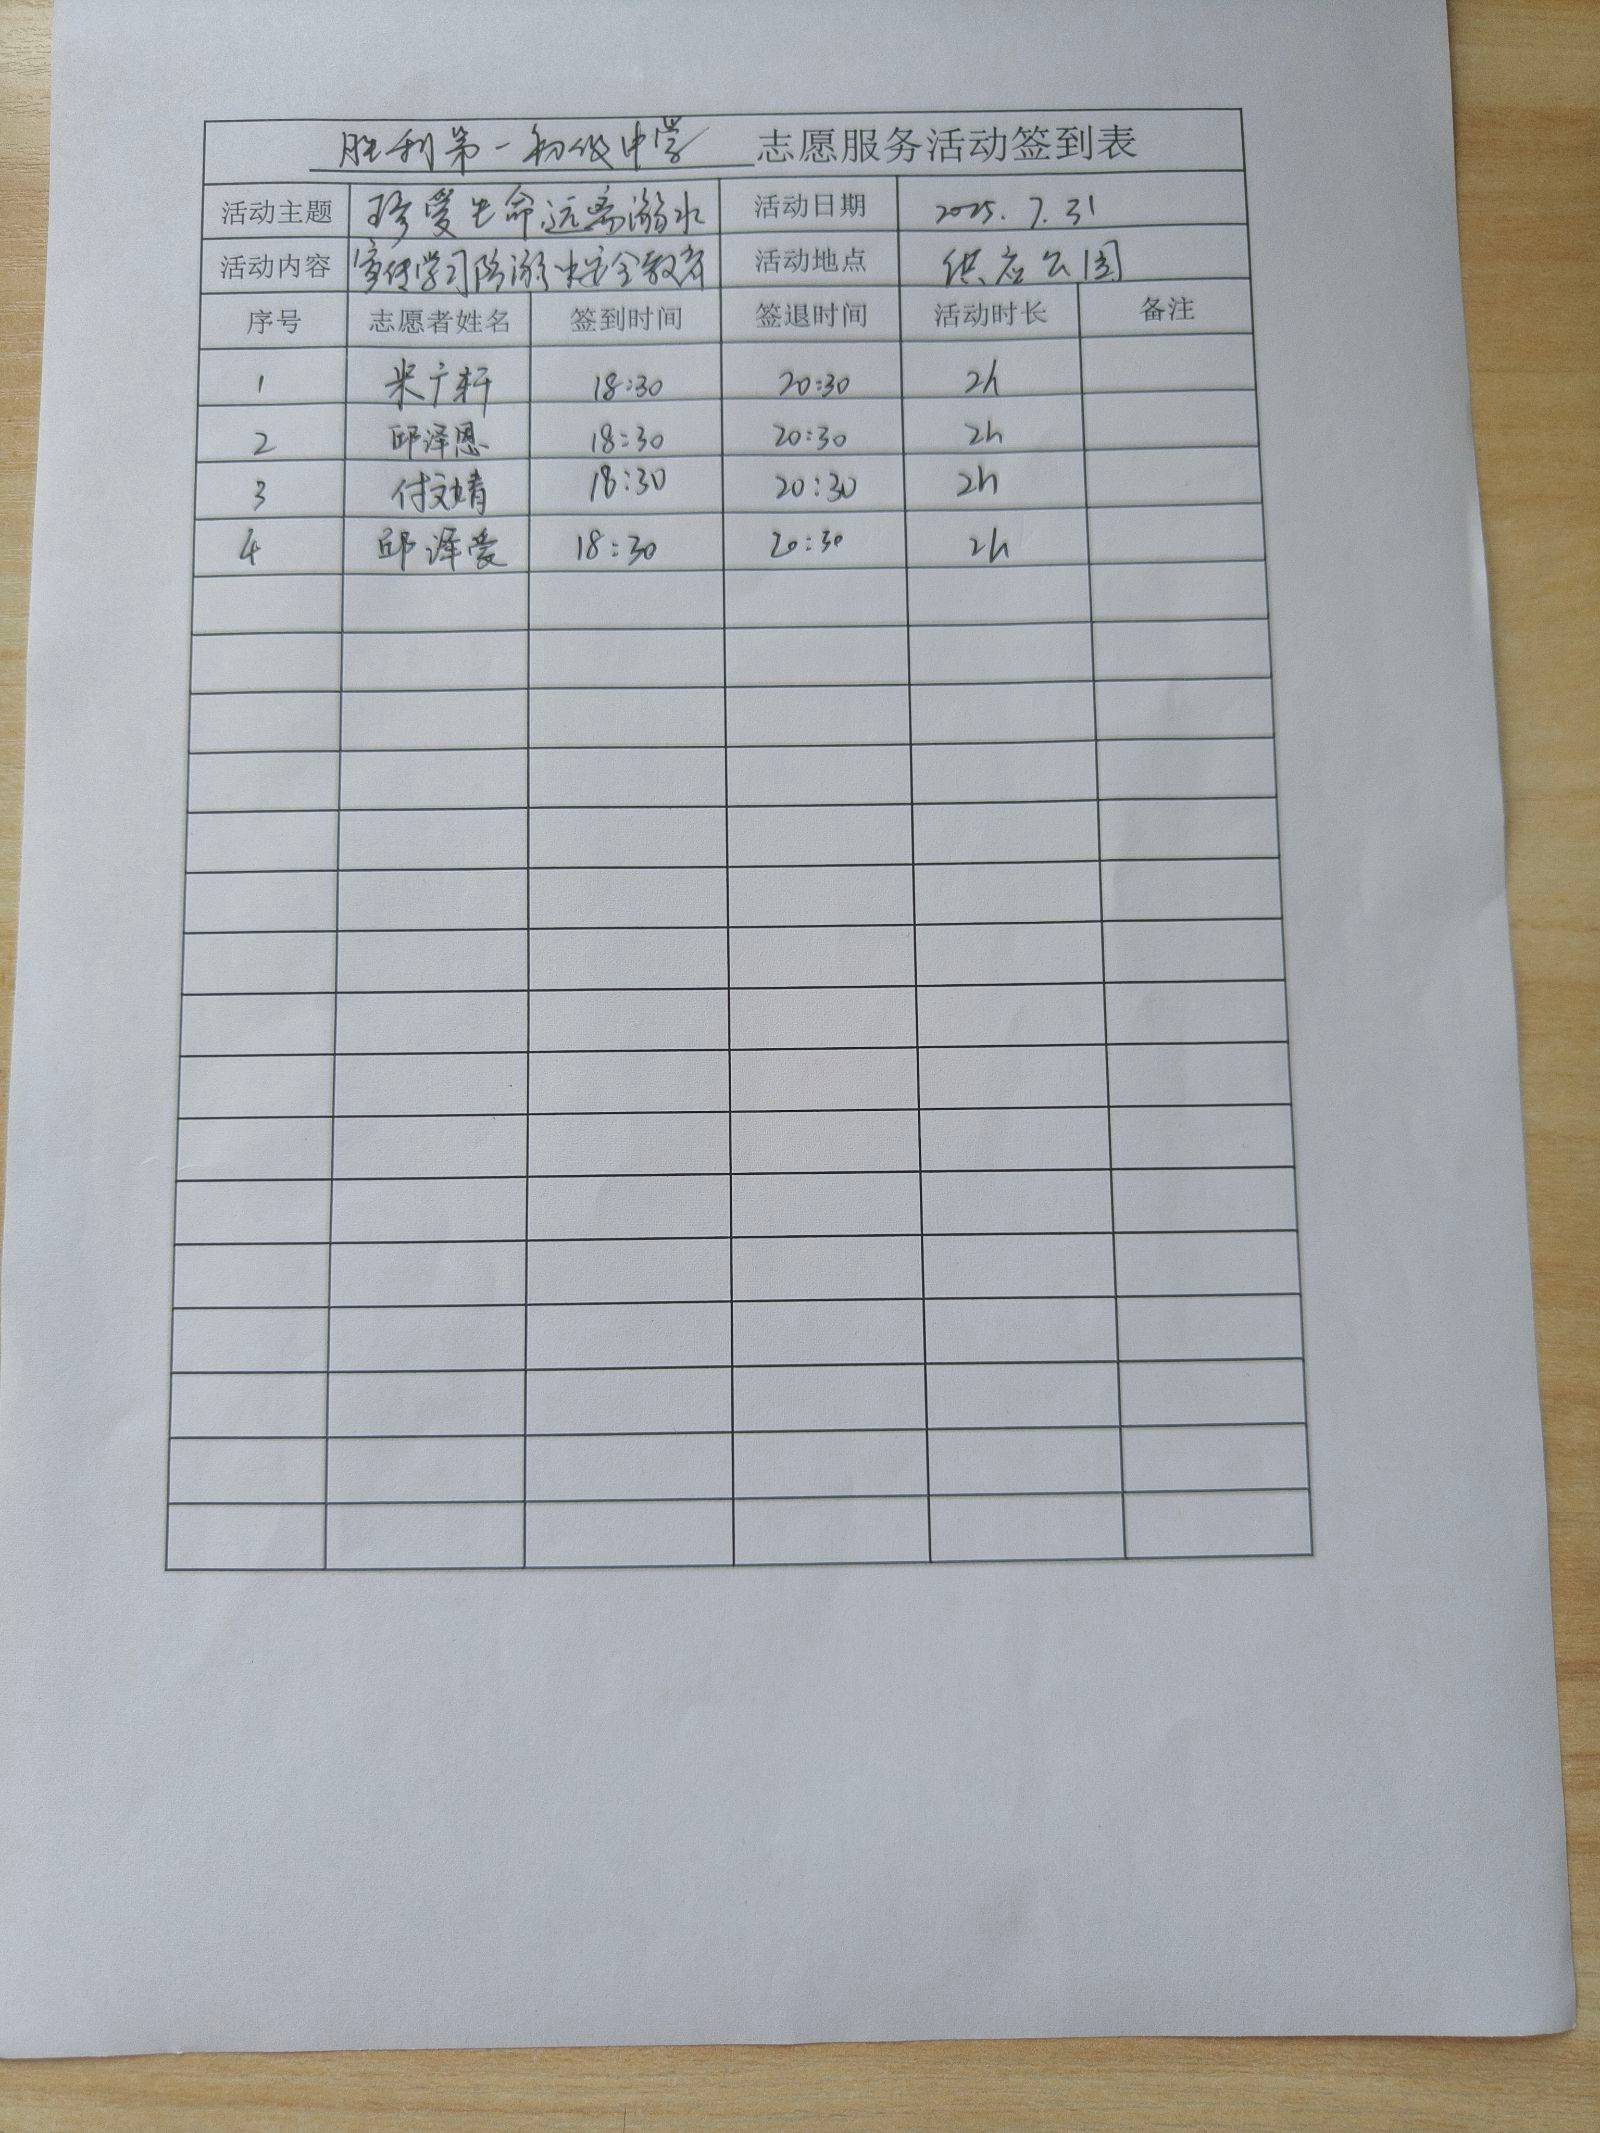 胜利第一初级中学 志愿服务活动签到表
活动主题 珍爱生命远离溺水 活动日期 2025.7.31
活动内容 宣传学习防溺水安全教育 活动地点 供应公园
序号 志愿者姓名 签到时间 签退时间 活动时长 备注
1 米广轩 18:30 20:30 2h
2 邱泽恩 18:30 20:30 2h
3 付文婧 18:30 20:30 2h
4 邱泽爱 18:30 20:30 2h